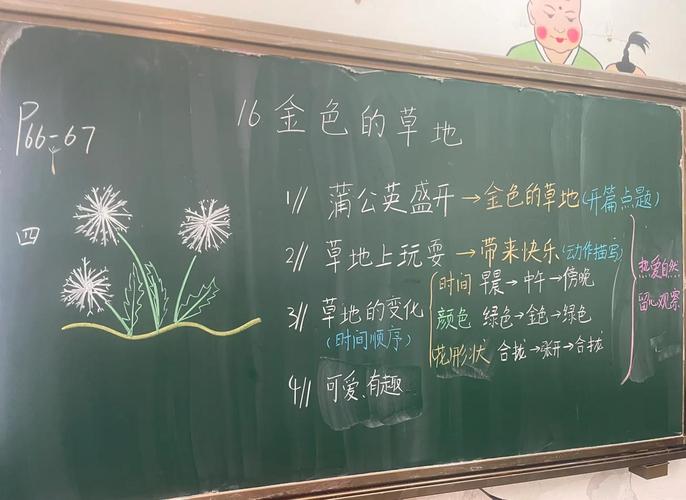 P66-67
16 金色的草地
四
1// 蒲公英盛开→金色的草地(开篇点题)
2// 草地上玩耍→带来快乐(动作描写)
3// 草地的变化
(时间顺序)
时间 早晨→中午→傍晚
颜色 绿色→金色→绿色
花形状 合拢→张开→合拢
4// 可爱、有趣
热爱自然
留心观察